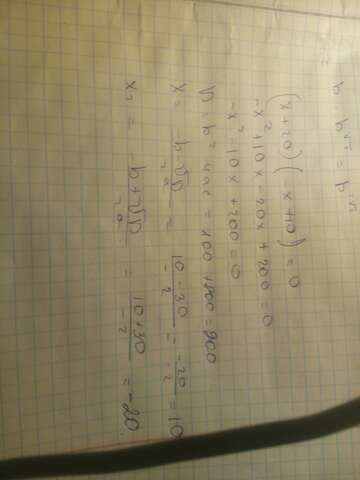 (x+20)(-x+10)=0
-x²+10x-20x+200=0
-x²-10x+200=0
D=b²-4ac=100+800=900
x₁=(-b-√D)/2a=(10-30)/-2=-20/-2=10
x₂=(-b+√D)/2a=(10+30)/-2=-20.